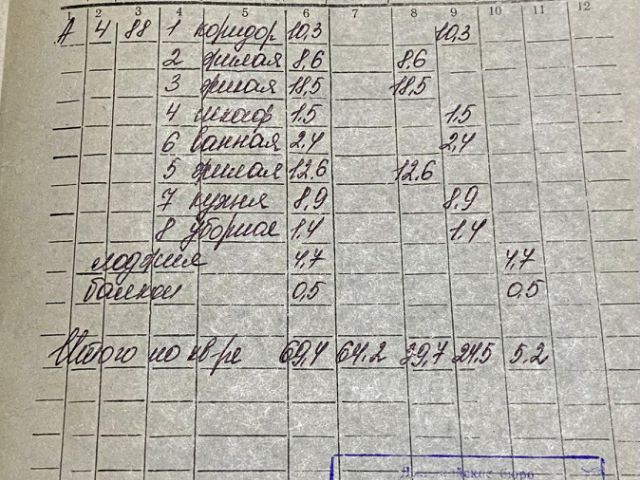 1 2 3 4 5 6 7 8 9 10 11 12
А 4 88 1 коридор 10,3 10,3
2 жилая 8,6 8,6
3 жилая 18,5 18,5
4 шкаф 1,5 1,5
6 ванная 2,4 2,4
5 жилая 12,6 12,6
7 кухня 8,9 8,9
8 уборная 1,4 1,4
лоджия 4,7 4,7
балкон 0,5 0,5
Итого по кв-ре 69,4 64,2 39,7 24,5 5,2
бюро